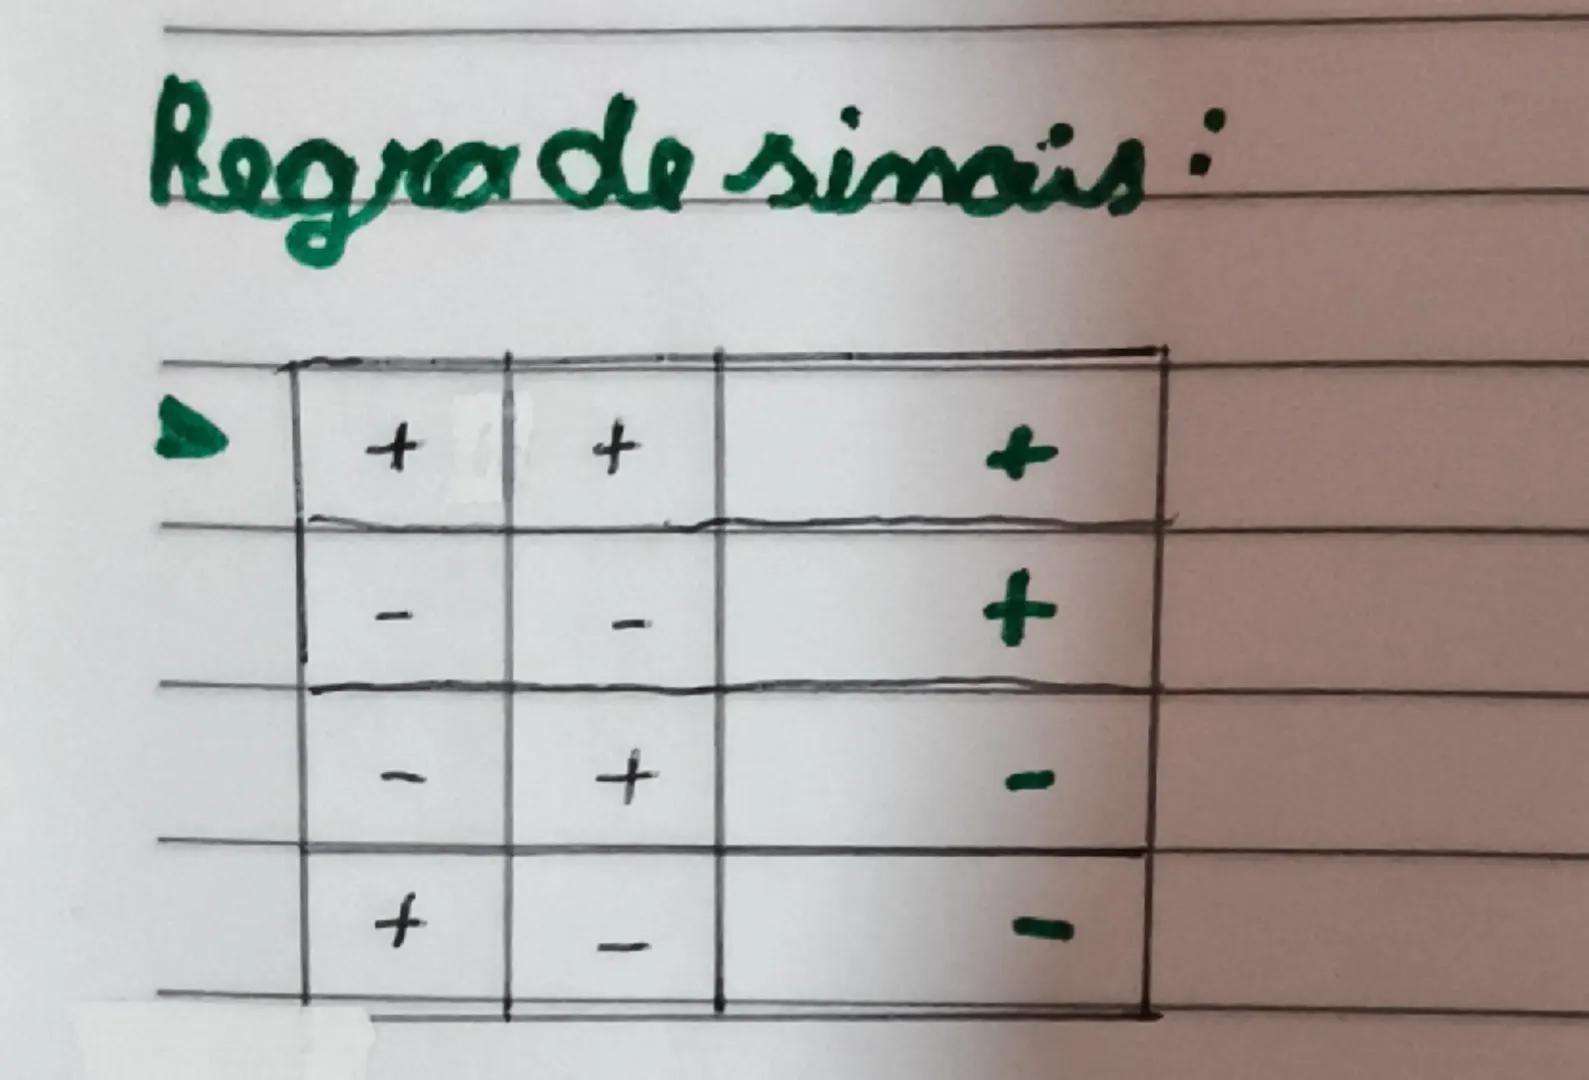 Regra de sinais:
+ + +
- - +
- + -
+ - -